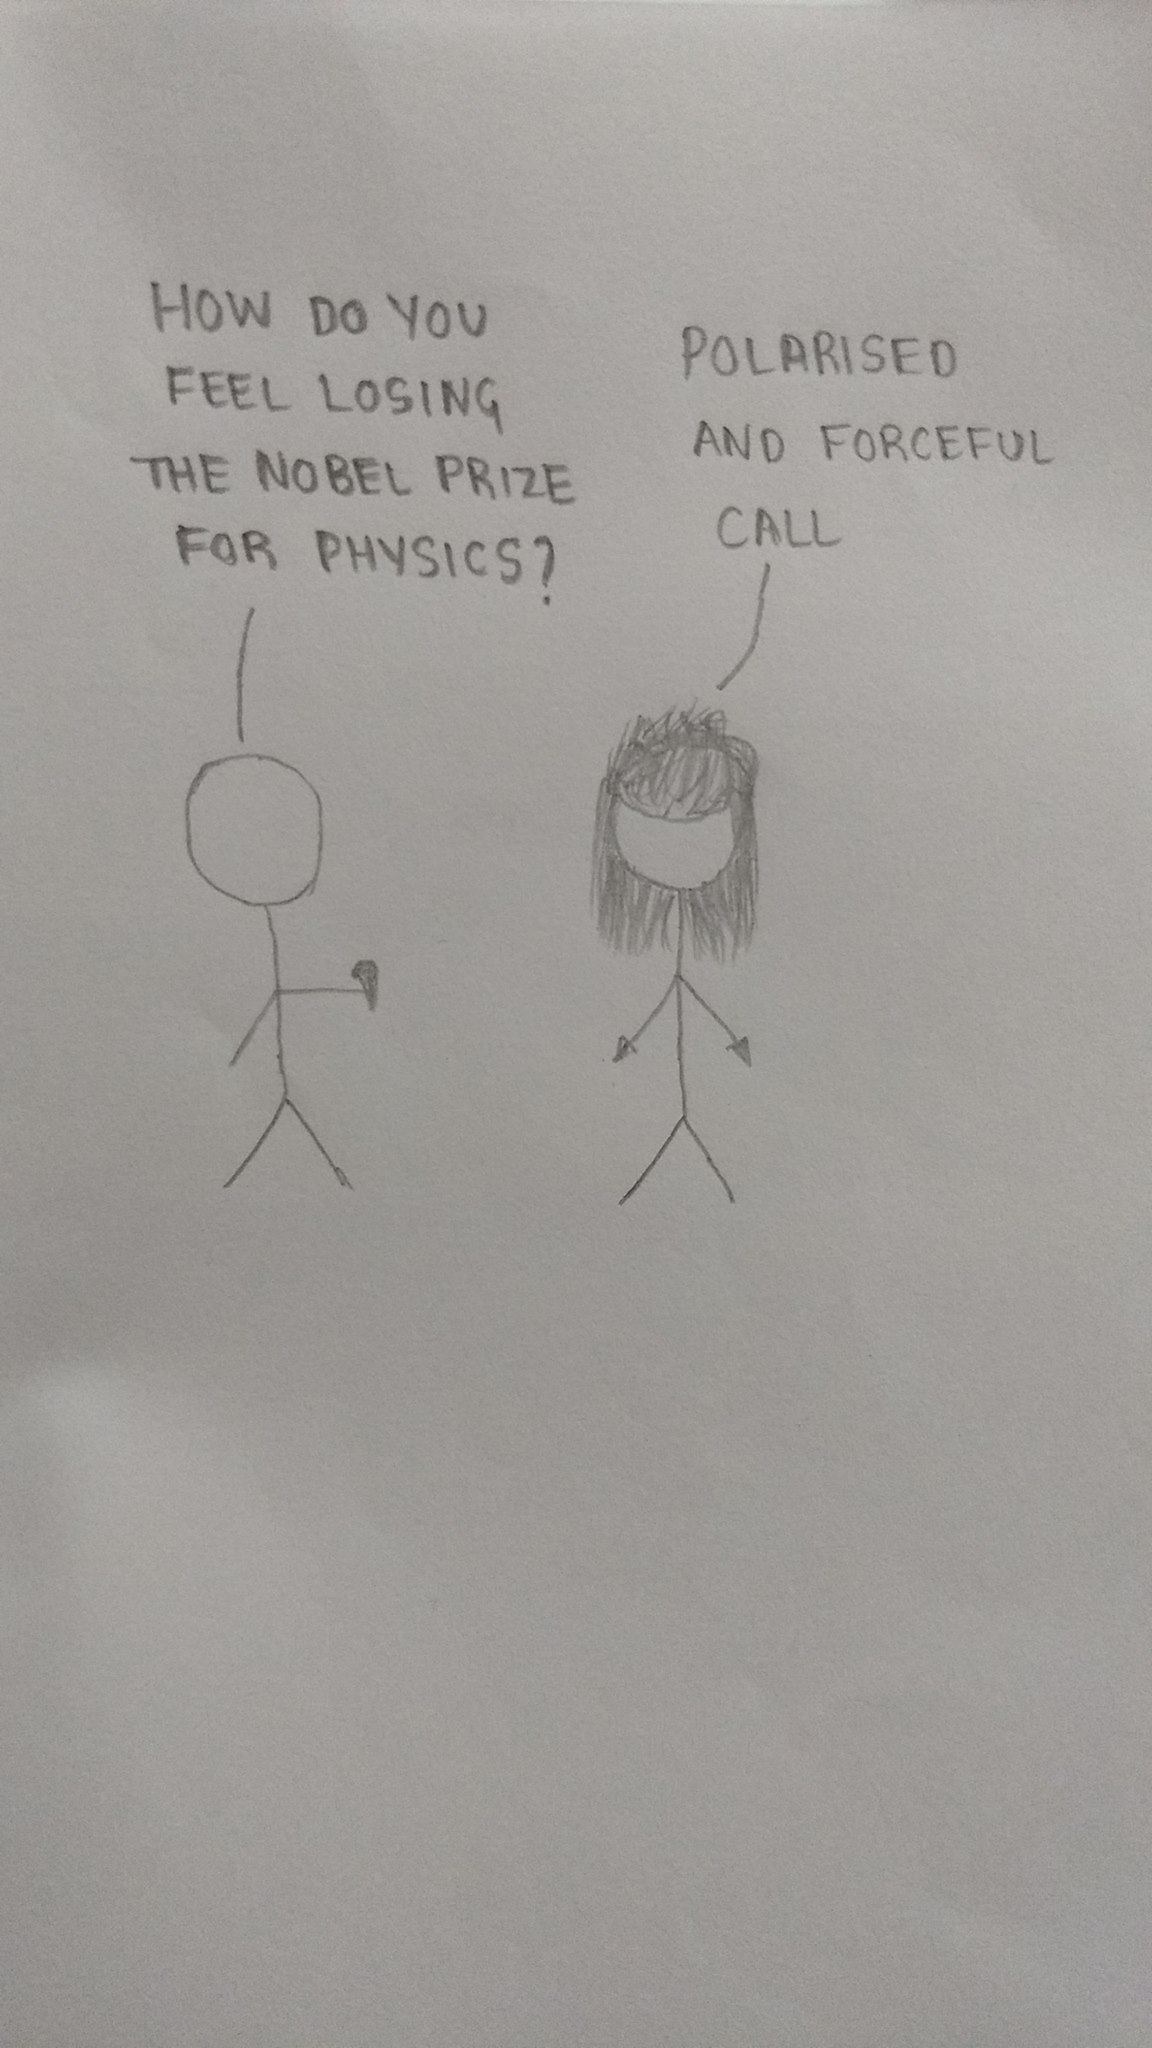 HOW DO YOU
FEEL LOSING
THE NOBEL PRIZE
FOR PHYSICS?
POLARISED
AND FORCEFUL
CALL